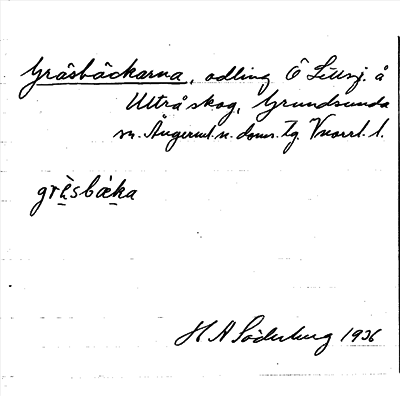 Gräsbäckarna, odling Ö Lillsj. å
Ultrå skog, Grundsunda
sn. Ångerml. n. doms. Tg. Vnorrl. l.
grèsbàka
H A Söderberg 1936